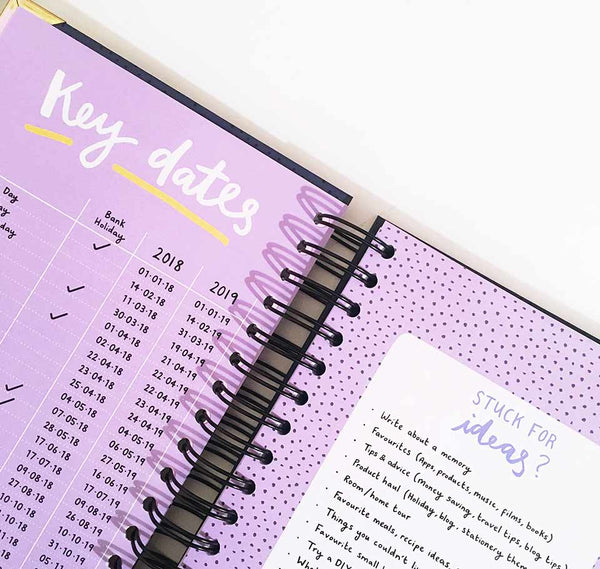 Key dates
Day
Bank
Holiday
2018
2019
01·01·18 01·01·19
14·02·18 14·02·19
11·03·18 31·03·19
30·03·18 19·04·19
01·04·18 21·04·19
02·04·18 22·04·19
22·04·18
23·04·18 23·04·19
25·04·18
04·05·18
07·05·18 06·05·19
28·05·18 27·05·19
17·06·18 16·06·19
17·07·18 17·07·19
27·08·18 26·08·19
31·10·19
STUCK FOR
ideas?
· Write about a memory
· Favourites (Apps, products, music, films, books)
· Tips & advice (Money saving, travel tips, blog tips)
· Product haul (Holiday, blog, stationery, them
· Room/home tour
· Favourite meals, recipe ideas,
· Things you couldn't li
· Favourite small
· Try a DIY